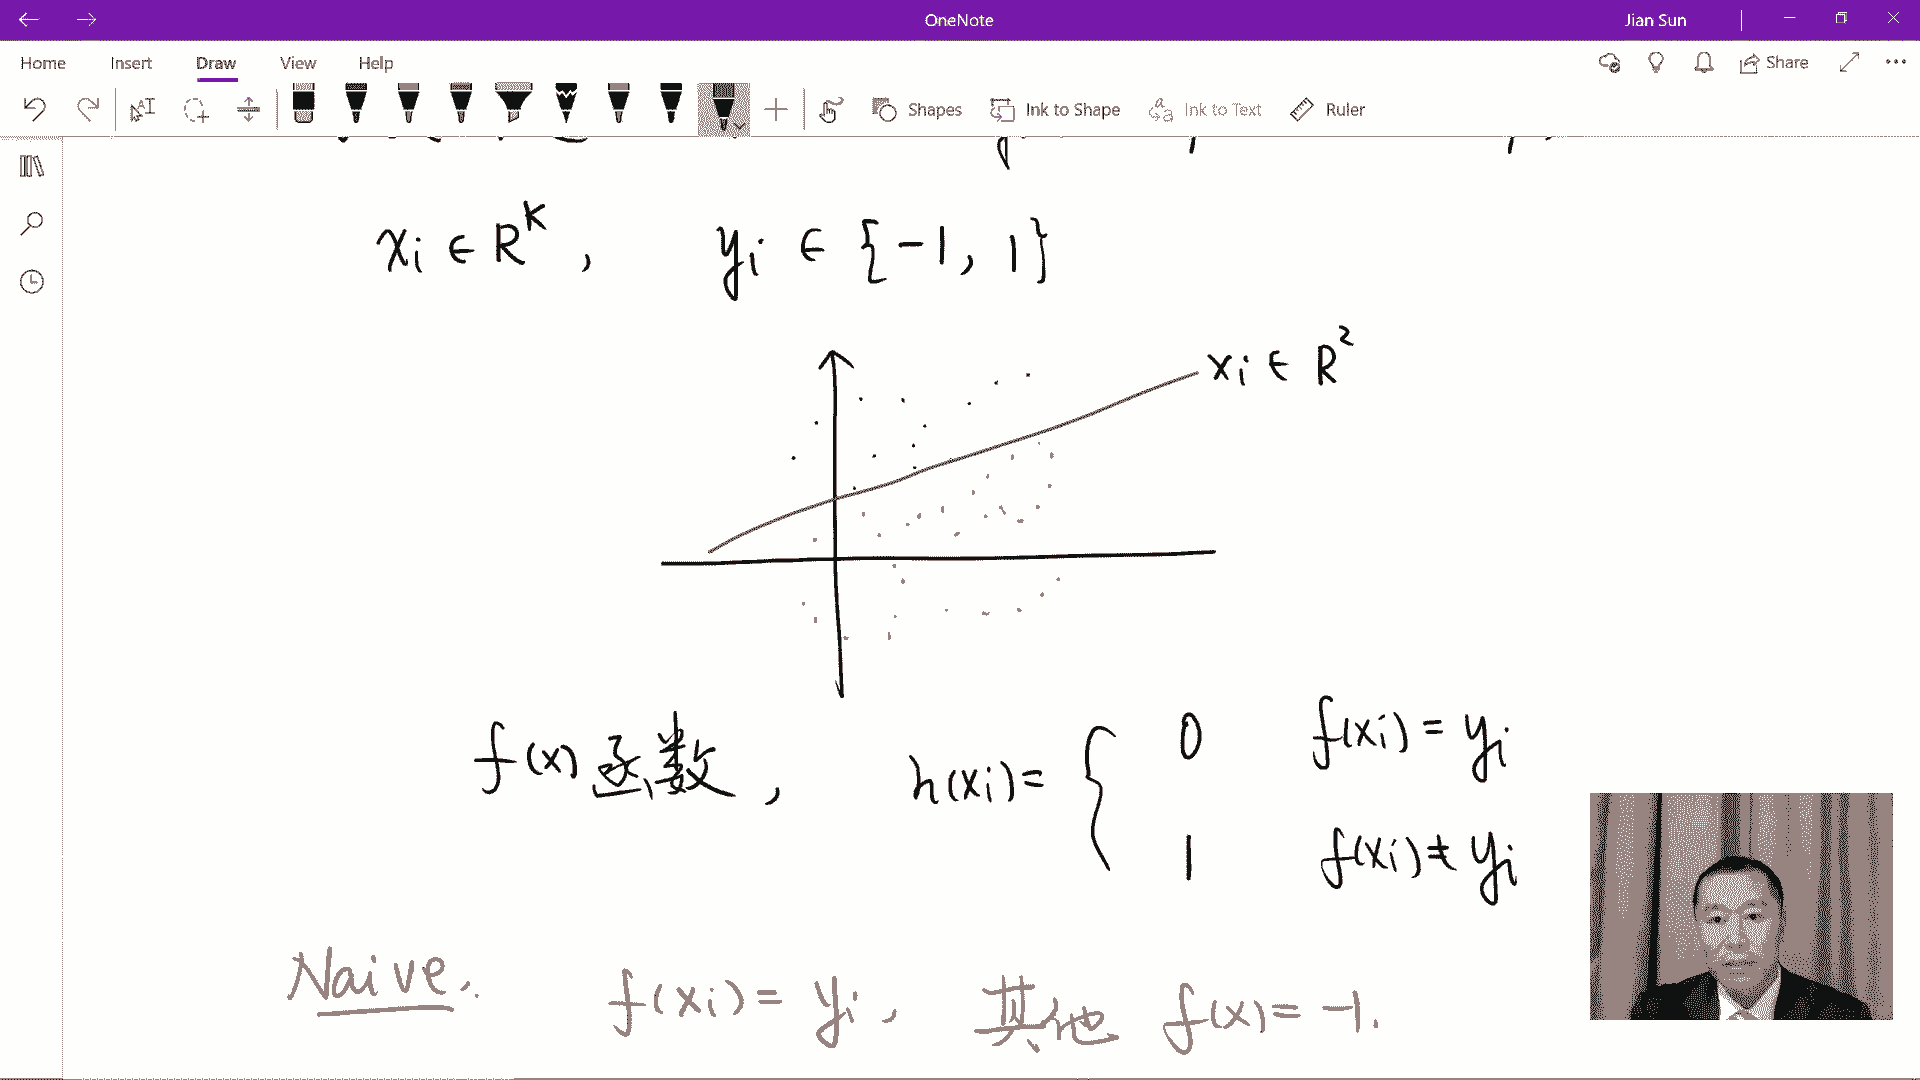 OneNote
Jian Sun
Home Insert Draw View Help
Share
Shapes Ink to Shape Ink to Text Ruler
xi ∈ R^K , yi ∈ {-1, 1}
xi ∈ R^2
f(x) 函数 , h(xi)= { 0 f(xi) = yi
1 f(xi) ≠ yi
Naive. f(xi) = yi , 其他 f(x) = -1.